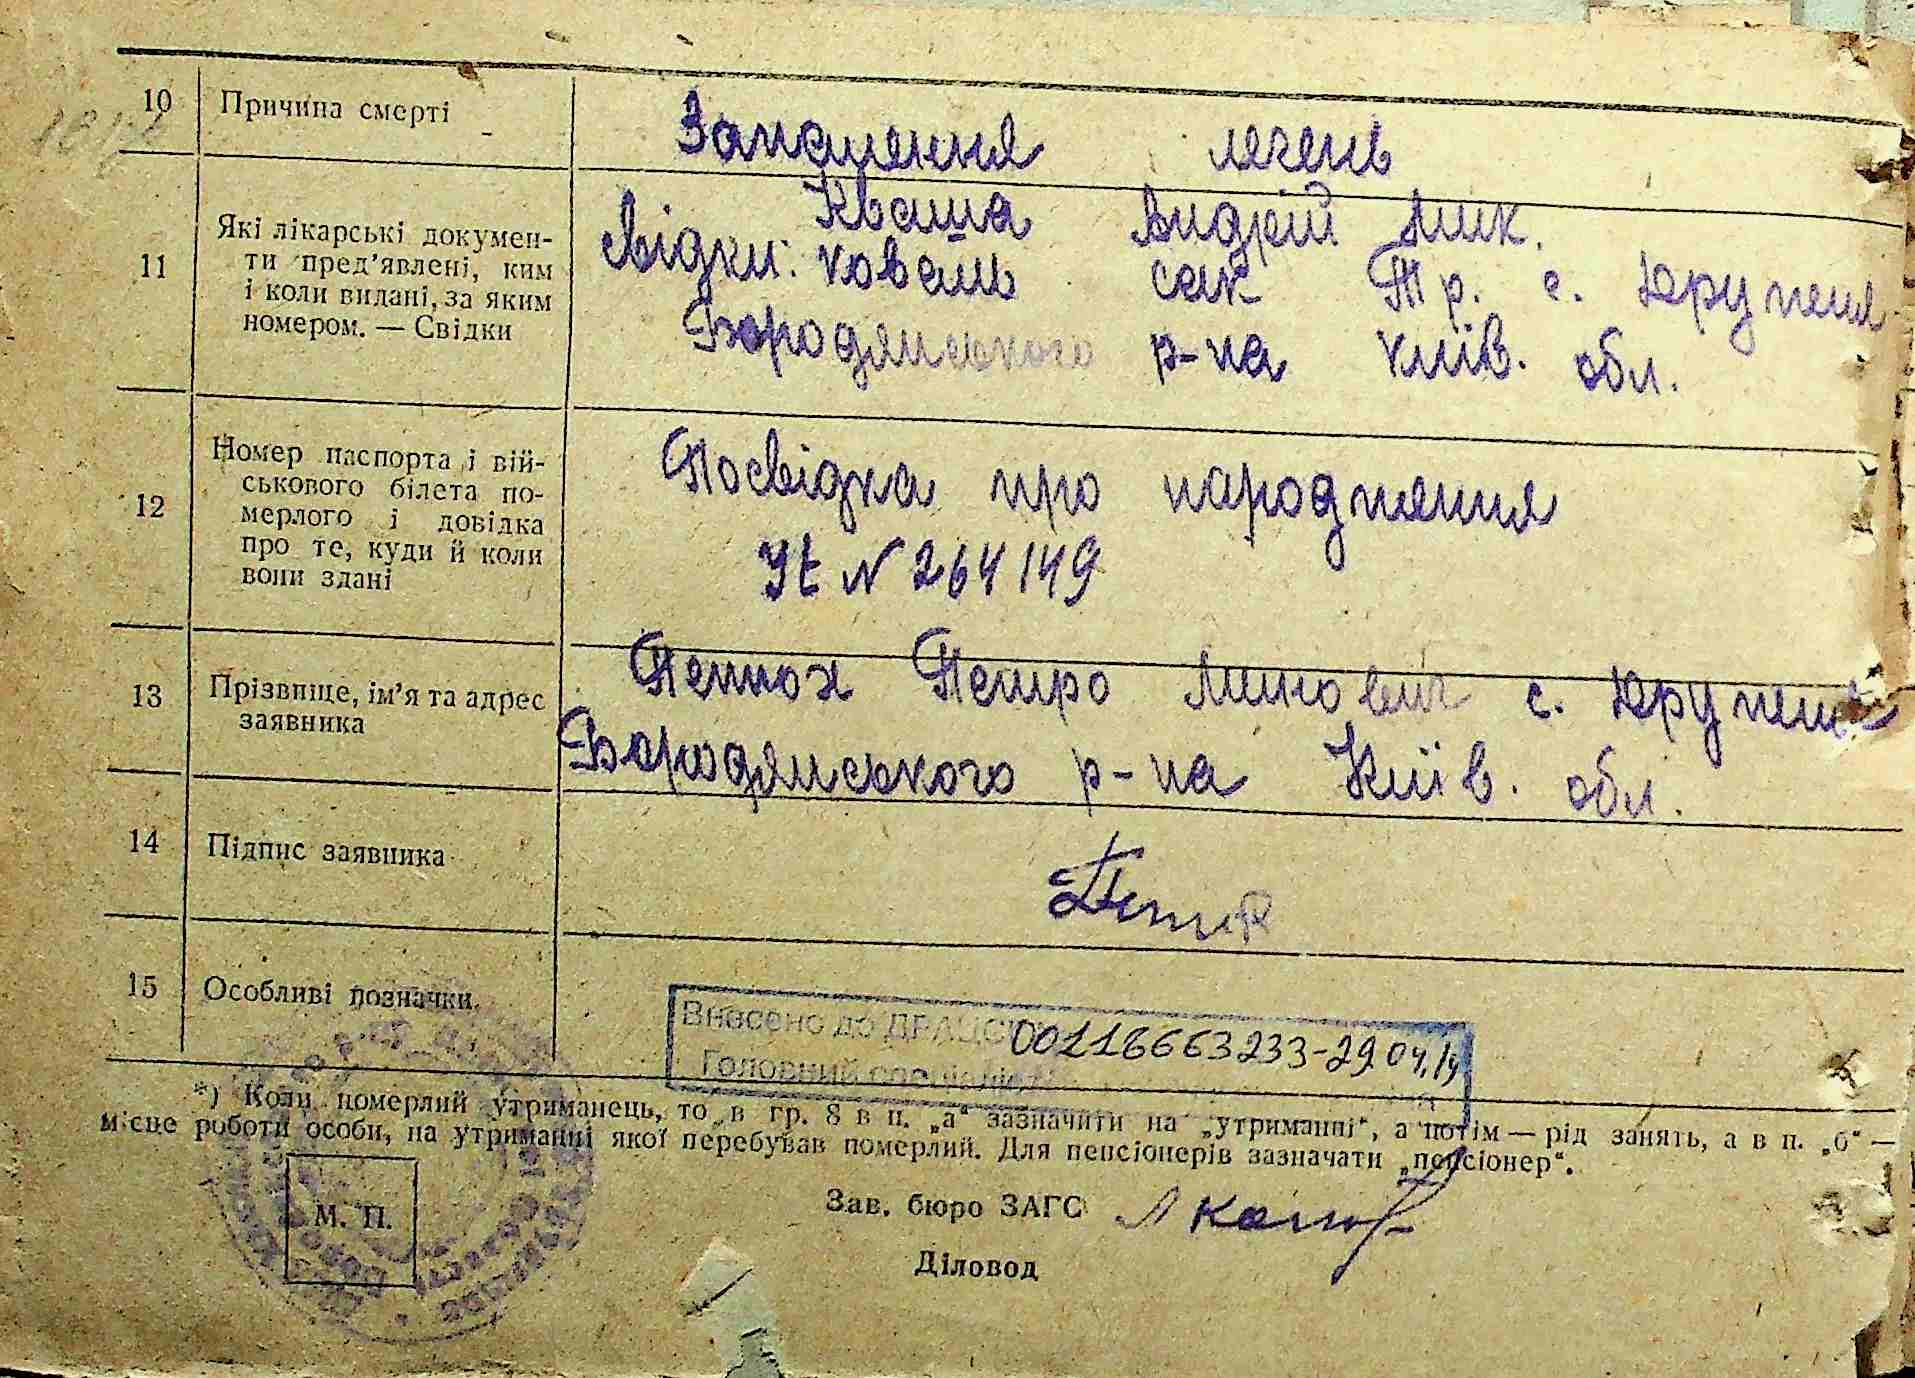 10 Причина смерті Запалення легень
11 Які лікарські документи пред'явлені, ким і коли видані, за яким номером. — Свідки
Кваша Андрій Мик.
Свідки: Коваль Сак Тр. с. Юрупеня
Бородянського р-на Київ. обл.
12 Номер паспорта і військового білета померлого і довідка про те, куди й коли вони здані
Посвідка про народження
№ 264149
13 Прізвище, ім'я та адрес заявника
Петро Минович с. Юрупеня
Бородянського р-на Київ. обл.
14 Підпис заявника
15 Особливі позначки
Внесено до ДРАЦС 00116663233-29.04.14
Головний спеціаліст
*) Коли померлий утриманець, то в гр. 8 в п. „а“ зазначити на „утриманні“, а потім — рід занять, а в п. „б“ —
місце роботи особи, на утриманні якої перебував померлий. Для пенсіонерів зазначати „пенсіонер“.
М. П.
Зав. бюро ЗАГС
Діловод